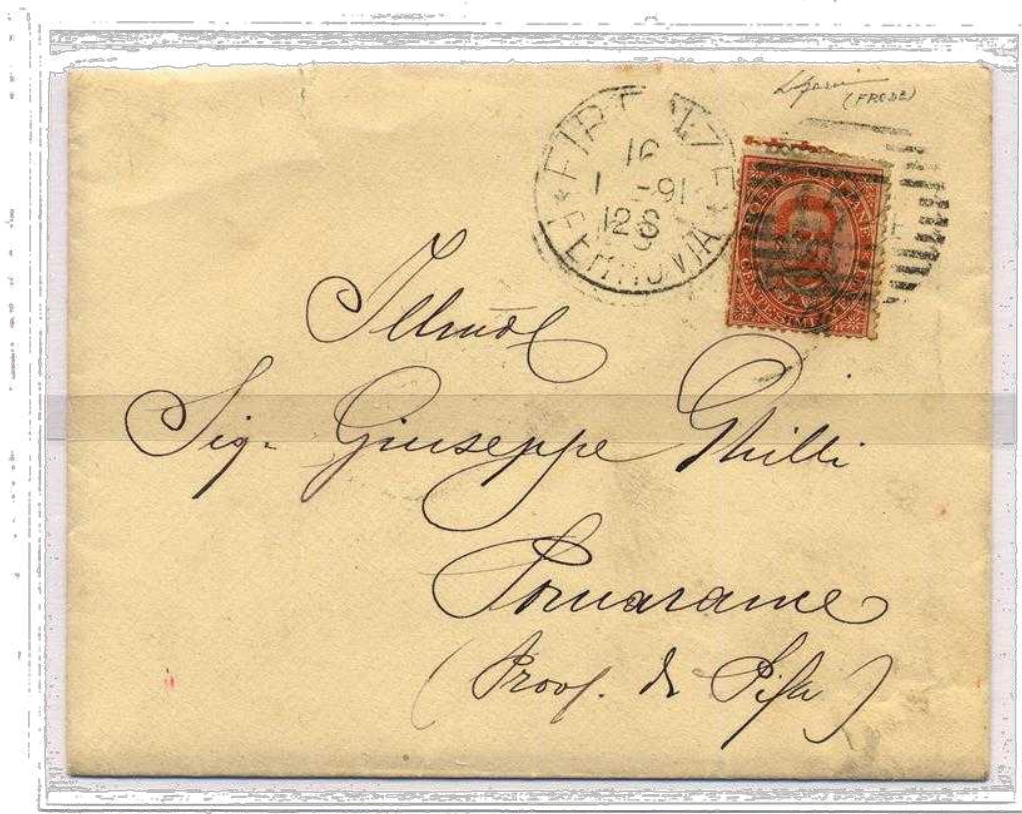 (FRODE)
FIRENZE
16
1 -91
12 S
FERROVIA
POSTE ITALIANE
Illmo
Sig. Giuseppe Ghilli
Pomarance
(Prov. di Pisa)